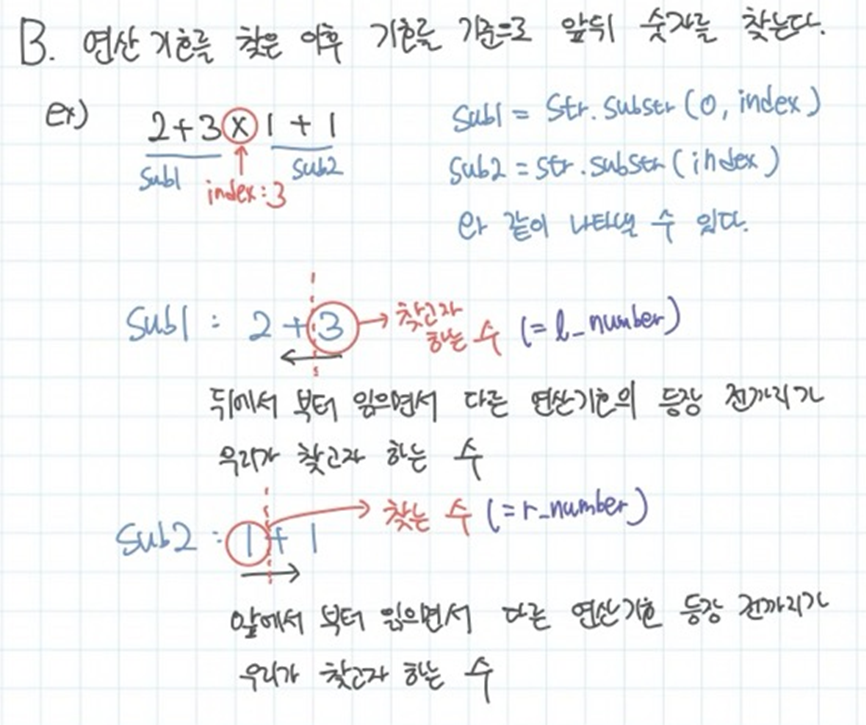 B. 연산 기호를 찾은 이후 기호를 기준으로 앞뒤 숫자를 찾는다.
ex) 2+3×1+1
sub1 sub2
index:3
Sub1 = Str.substr(0, index)
Sub2 = Str.substr(index)
와 같이 나타낼 수 있다.
Sub1 : 2+3 → 찾고자 하는 수 (=l_number)
뒤에서 부터 읽으면서 다른 연산기호의 등장 전까지가
우리가 찾고자 하는 수
Sub2 : 1+1 → 찾는 수 (=r_number)
앞에서 부터 읽으면서 다른 연산기호 등장 전까지가
우리가 찾고자 하는 수